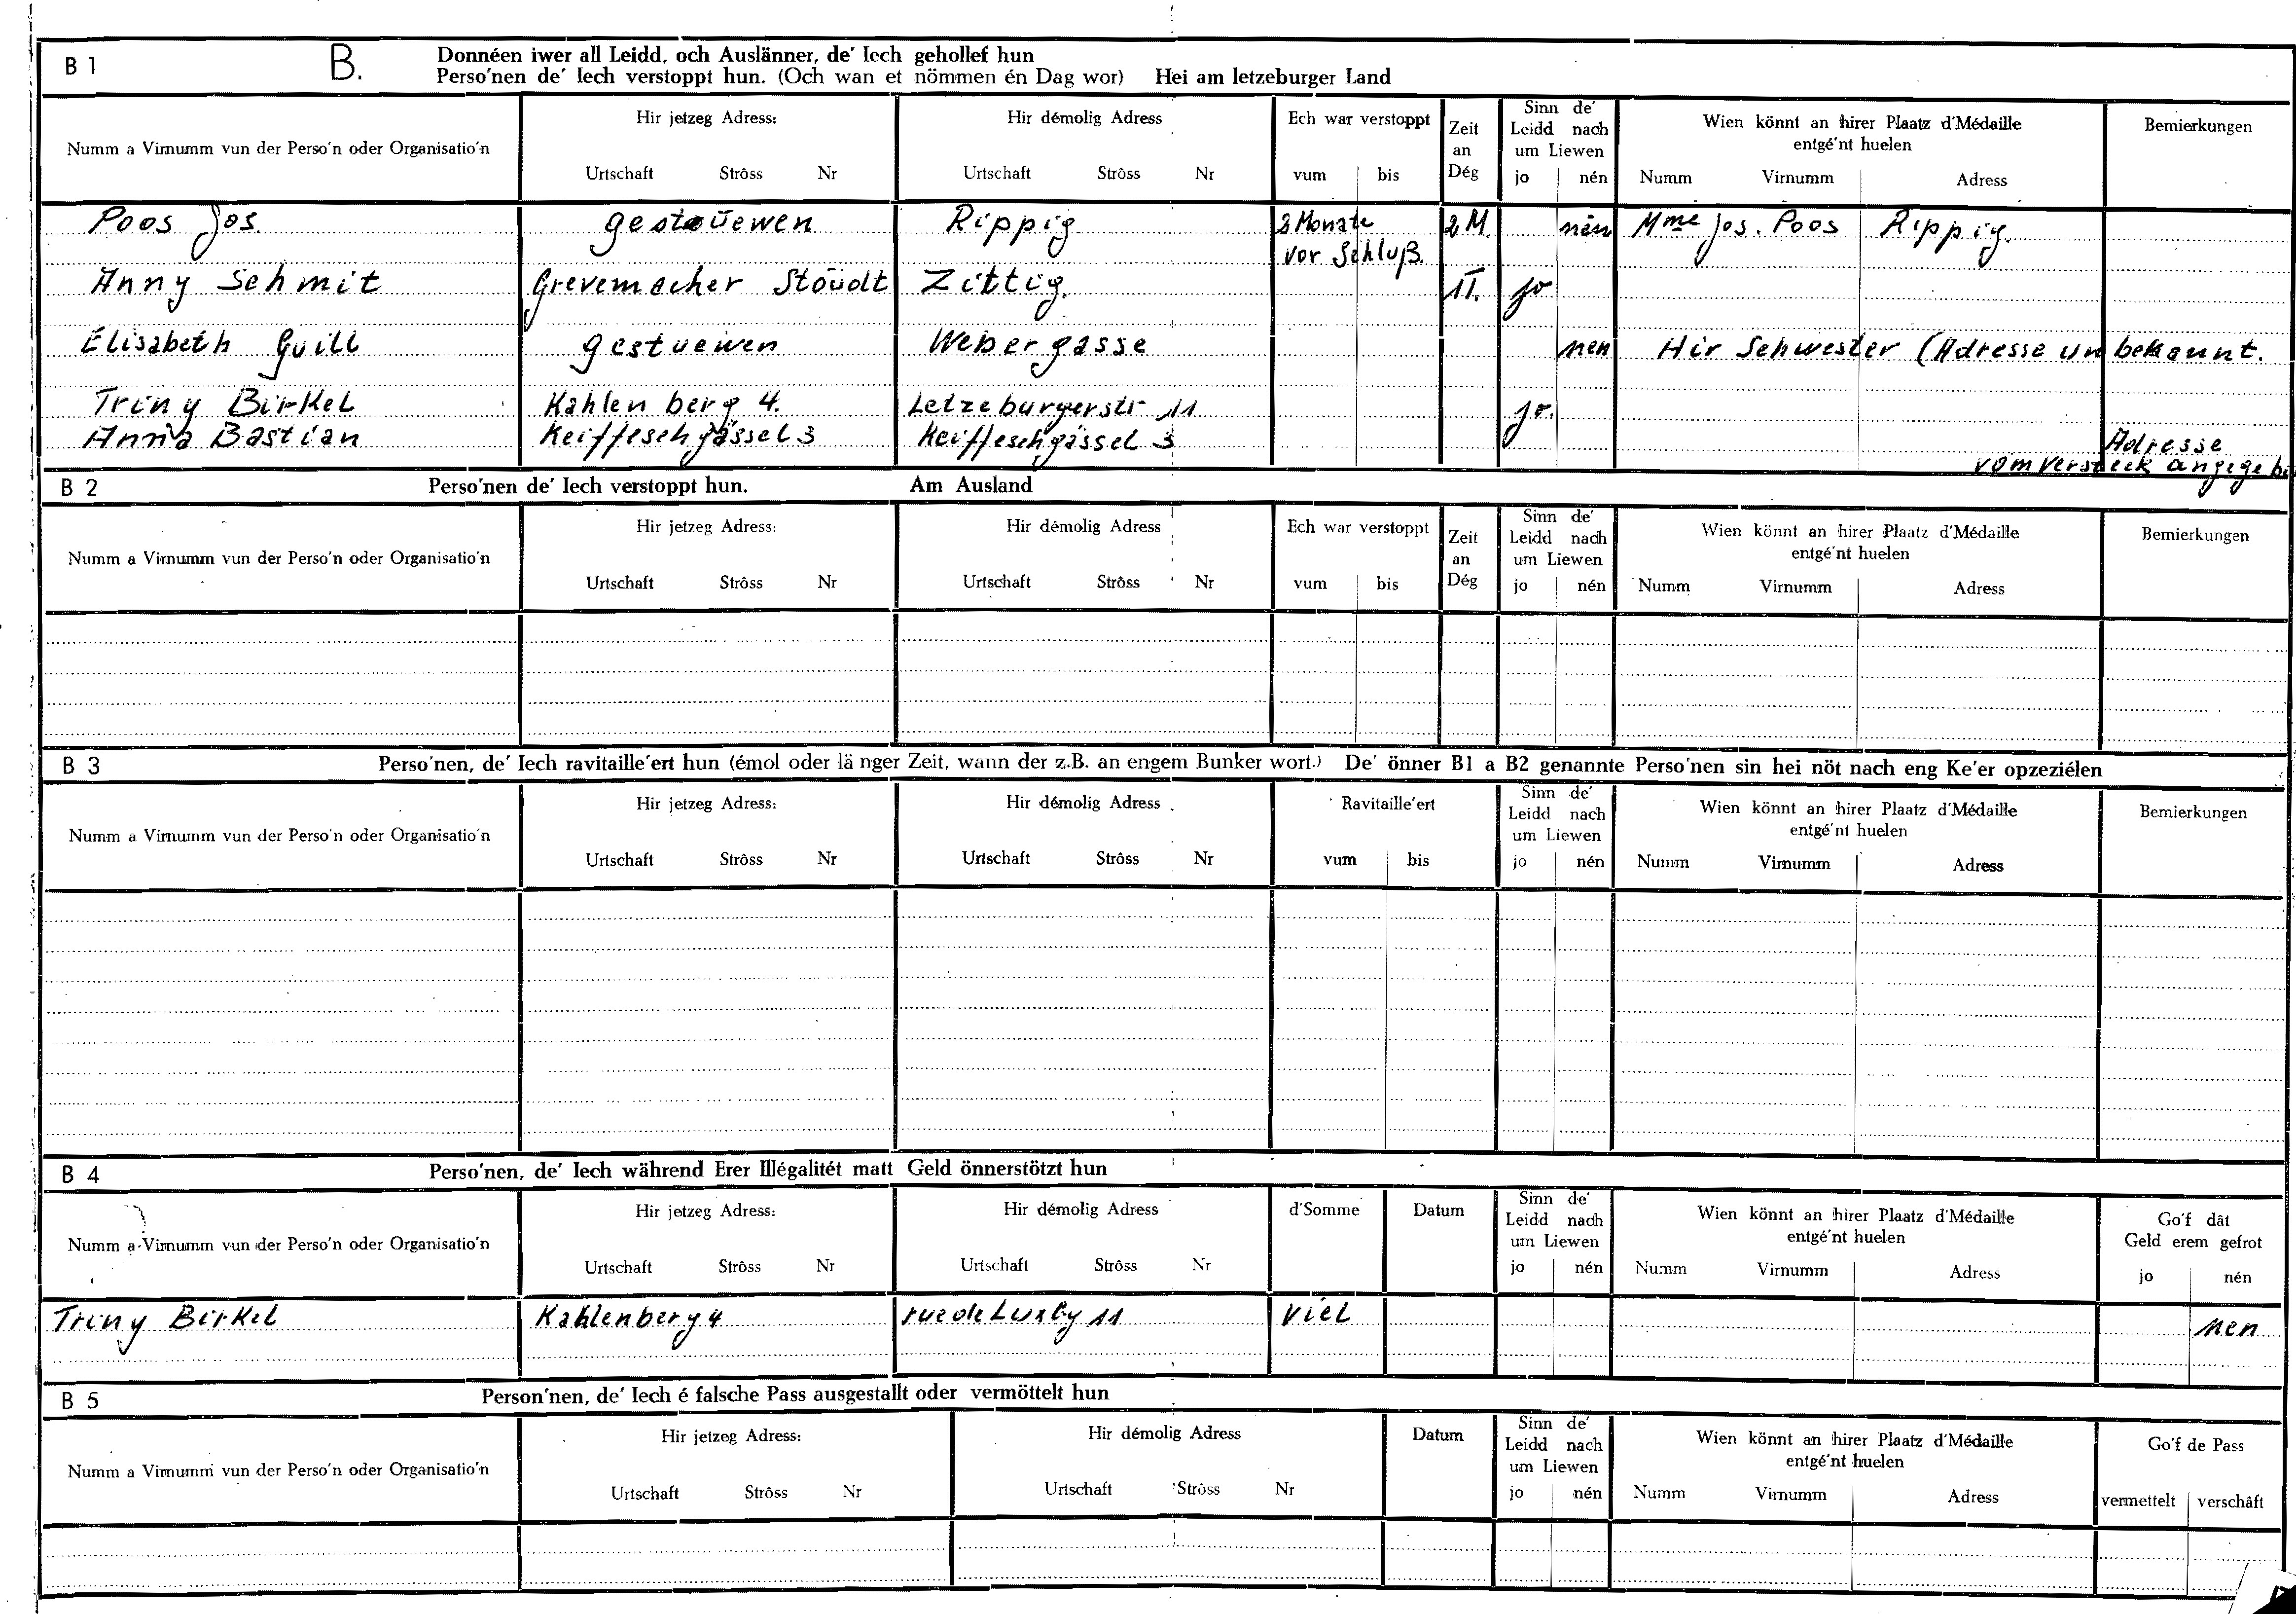 B 1 B. Donnéen iwer all Leidd, och Auslänner, de' Iech gehollef hun
Perso'nen de' Iech verstoppt hun. (Och wan et nömmen én Dag wor) Hei am letzeburger Land
Numm a Virnumm vun der Perso'n oder Organisatio'n
Hir jetzeg Adress:
Urtschaft Strôss Nr
Hir démolig Adress
Urtschaft Strôss Nr
Ech war verstoppt
vum bis
Zeit
an
Dég
Sinn de'
Leidd nach
um Liewen
jo nén
Wien könnt an hirer Plaatz d'Médaille
entgé'nt huelen
Numm Virnumm Adress
Bemierkungen
Poos Jos. Rippig. 2 Monate 2 M. nén Mme Jos. Poos Rippig.
vor Schluß.
Anny Schmit Grevemacher Zittig. jo
Elisabeth Guill gestuewen Webergasse nen Hir Schwester (Adresse unbekannt.
Triny Birkel Kahlenberg 4. Letzeburgerstr 11 jo.
Anna Bastian Keiffeschgässel 3 Keiffeschgässel 3 Adresse
vom Versteck
B 2 Perso'nen de' Iech verstoppt hun. Am Ausland
Numm a Virnumm vun der Perso'n oder Organisatio'n
Hir jetzeg Adress:
Urtschaft Strôss Nr
Hir démolig Adress
Urtschaft Strôss Nr
Ech war verstoppt
vum bis
Zeit
an
Dég
Sinn de'
Leidd nach
um Liewen
jo nén
Wien könnt an hirer Plaatz d'Médaille
entgé'nt huelen
Numm Virnumm Adress
Bemierkungen
B 3 Perso'nen, de' Iech ravitaille'ert hun (émol oder länger Zeit, wann der z.B. an engem Bunker wort.) De' önner B1 a B2 genannte Perso'nen sin hei nöt nach eng Ke'er opzeziélen
Numm a Virnumm vun der Perso'n oder Organisatio'n
Hir jetzeg Adress:
Urtschaft Strôss Nr
Hir démolig Adress
Urtschaft Strôss Nr
Ravitaille'ert
vum bis
Sinn de'
Leidd nach
um Liewen
jo nén
Wien könnt an hirer Plaatz d'Médaille
entgé'nt huelen
Numm Virnumm Adress
Bemierkungen
B 4 Perso'nen, de' Iech während Erer Illégalitét matt Geld önnerstötzt hun
Numm a Virnumm vun der Perso'n oder Organisatio'n
Hir jetzeg Adress:
Urtschaft Strôss Nr
Hir démolig Adress
Urtschaft Strôss Nr
d'Somme
Datum
Sinn de'
Leidd nach
um Liewen
jo nén
Wien könnt an hirer Plaatz d'Médaille
entgé'nt huelen
Numm Virnumm Adress
Go'f dât
Geld erem gefrot
jo nén
Triny Birkel Kahlenberg 4 rue de Luxbg 11 viel nen
B 5 Person'nen, de' Iech é falsche Pass ausgestallt oder vermöttelt hun
Numm a Virnumm vun der Perso'n oder Organisatio'n
Hir jetzeg Adress:
Urtschaft Strôss Nr
Hir démolig Adress
Urtschaft Strôss Nr
Datum
Sinn de'
Leidd nach
um Liewen
jo nén
Wien könnt an hirer Plaatz d'Médaille
entgé'nt huelen
Numm Virnumm Adress
Go'f de Pass
vermettelt verschâft